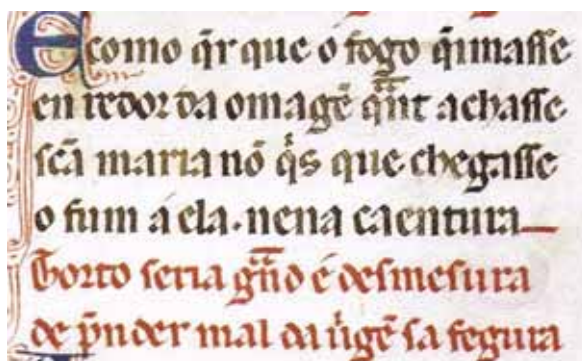 E como q̈r que o fogo q̈imasse
en redor da omagẽ q̃nt achasse
scã maria nõ q̇s que chegasse
o fum a ela. nena caentura
Torto seria gñd e desmesura
de p̃nder mal da ùgẽ sa fegura